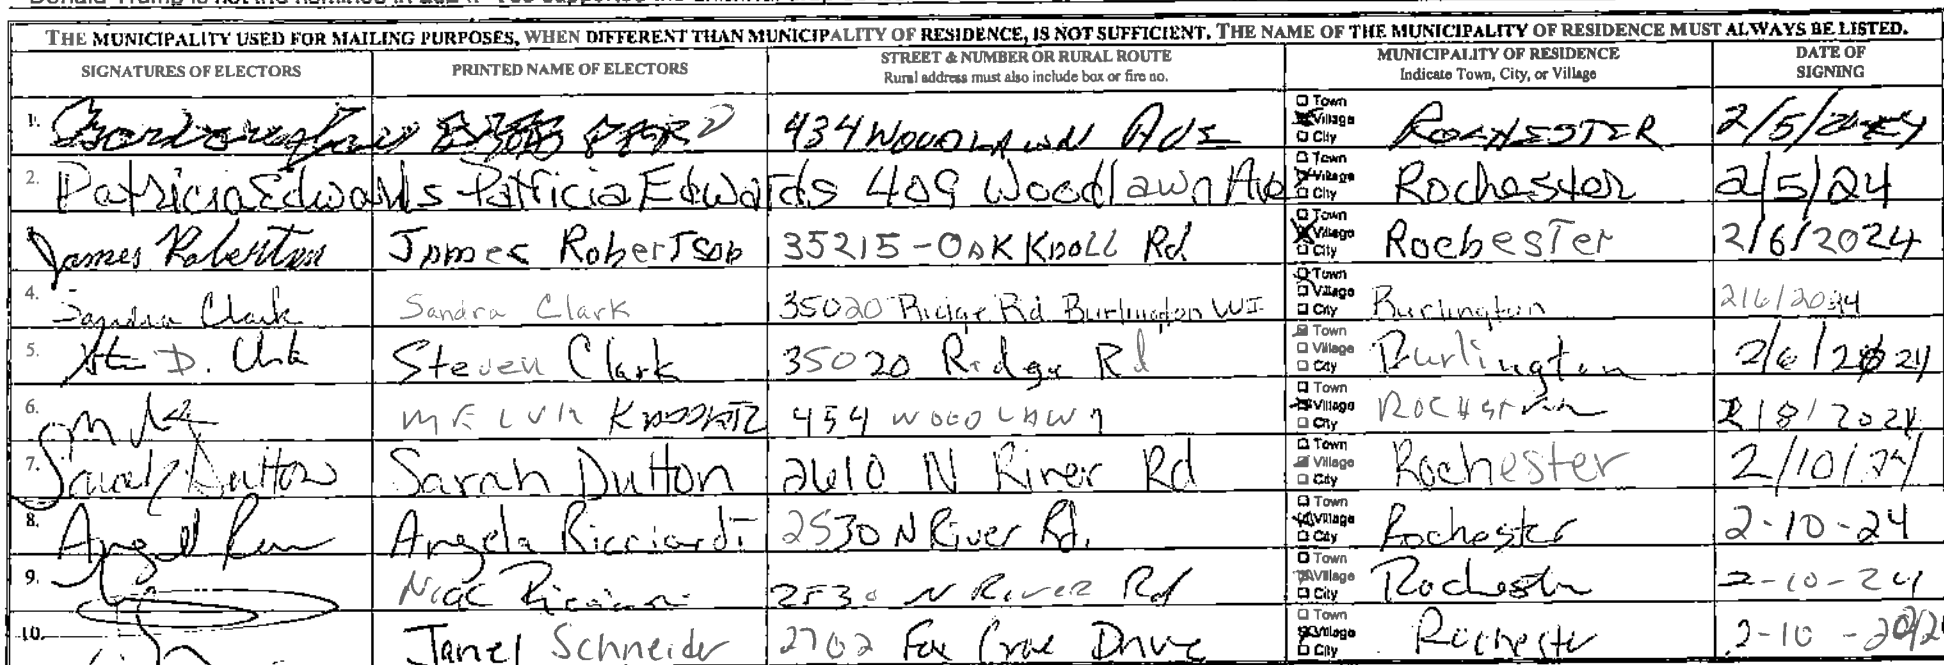 THE MUNICIPALITY USED FOR MAILING PURPOSES, WHEN DIFFERENT THAN MUNICIPALITY OF RESIDENCE, IS NOT SUFFICIENT. THE NAME OF THE MUNICIPALITY OF RESIDENCE MUST ALWAYS BE LISTED.
SIGNATURES OF ELECTORS PRINTED NAME OF ELECTORS STREET & NUMBER OR RURAL ROUTE MUNICIPALITY OF RESIDENCE DATE OF
Rural address must also include box or fire no. Indicate Town, City, or Village SIGNING
1. 434 WOODLAWN AVE Town Village City ROCHESTER 2/5/
2. Patricia Edwards Patricia Edwards 409 Woodlawn Ave Town Village City Rochester 2/5/24
3. James Robertson James Robertson 35215 - OAK KNOLL Rd Town Village City Rochester 2/6/2024
4. Sandra Clark Sandra Clark 35020 Ridge Rd Burlington WI Town Village City Burlington 2/6/2024
5. D. Clark Steven Clark 35020 Ridge Rd Town Village City Burlington 2/6/2024
6. MELVIN 454 WOODLAWN Town Village City Rochester 2/8/2024
7. Sarah Dutton Sarah Dutton 2610 N River Rd Town Village City Rochester 2/10/24
8. Angela Ricciardi 2530 N River Rd. Town Village City Rochester 2-10-24
9. Ricciardi 2530 N River Rd Town Village City Rochester 2-10-24
10. Janel Schneider 2702 Fox Drive Town Village City Rochester 2-10-